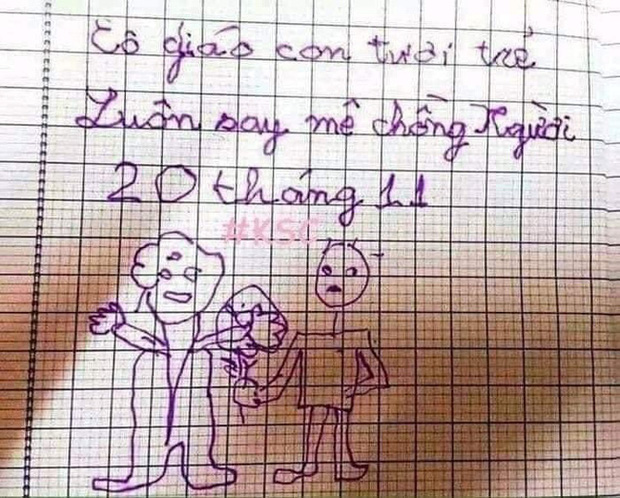 Cô giáo con tươi trẻ
Luôn say mê chồng Người
20 tháng 11
#KSC